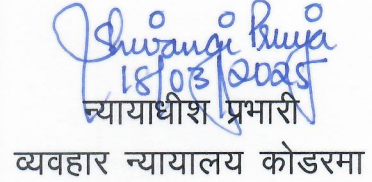 Shivangi Priya
18/03/2025
न्यायाधीश प्रभारी
व्यवहार न्यायालय कोडरमा